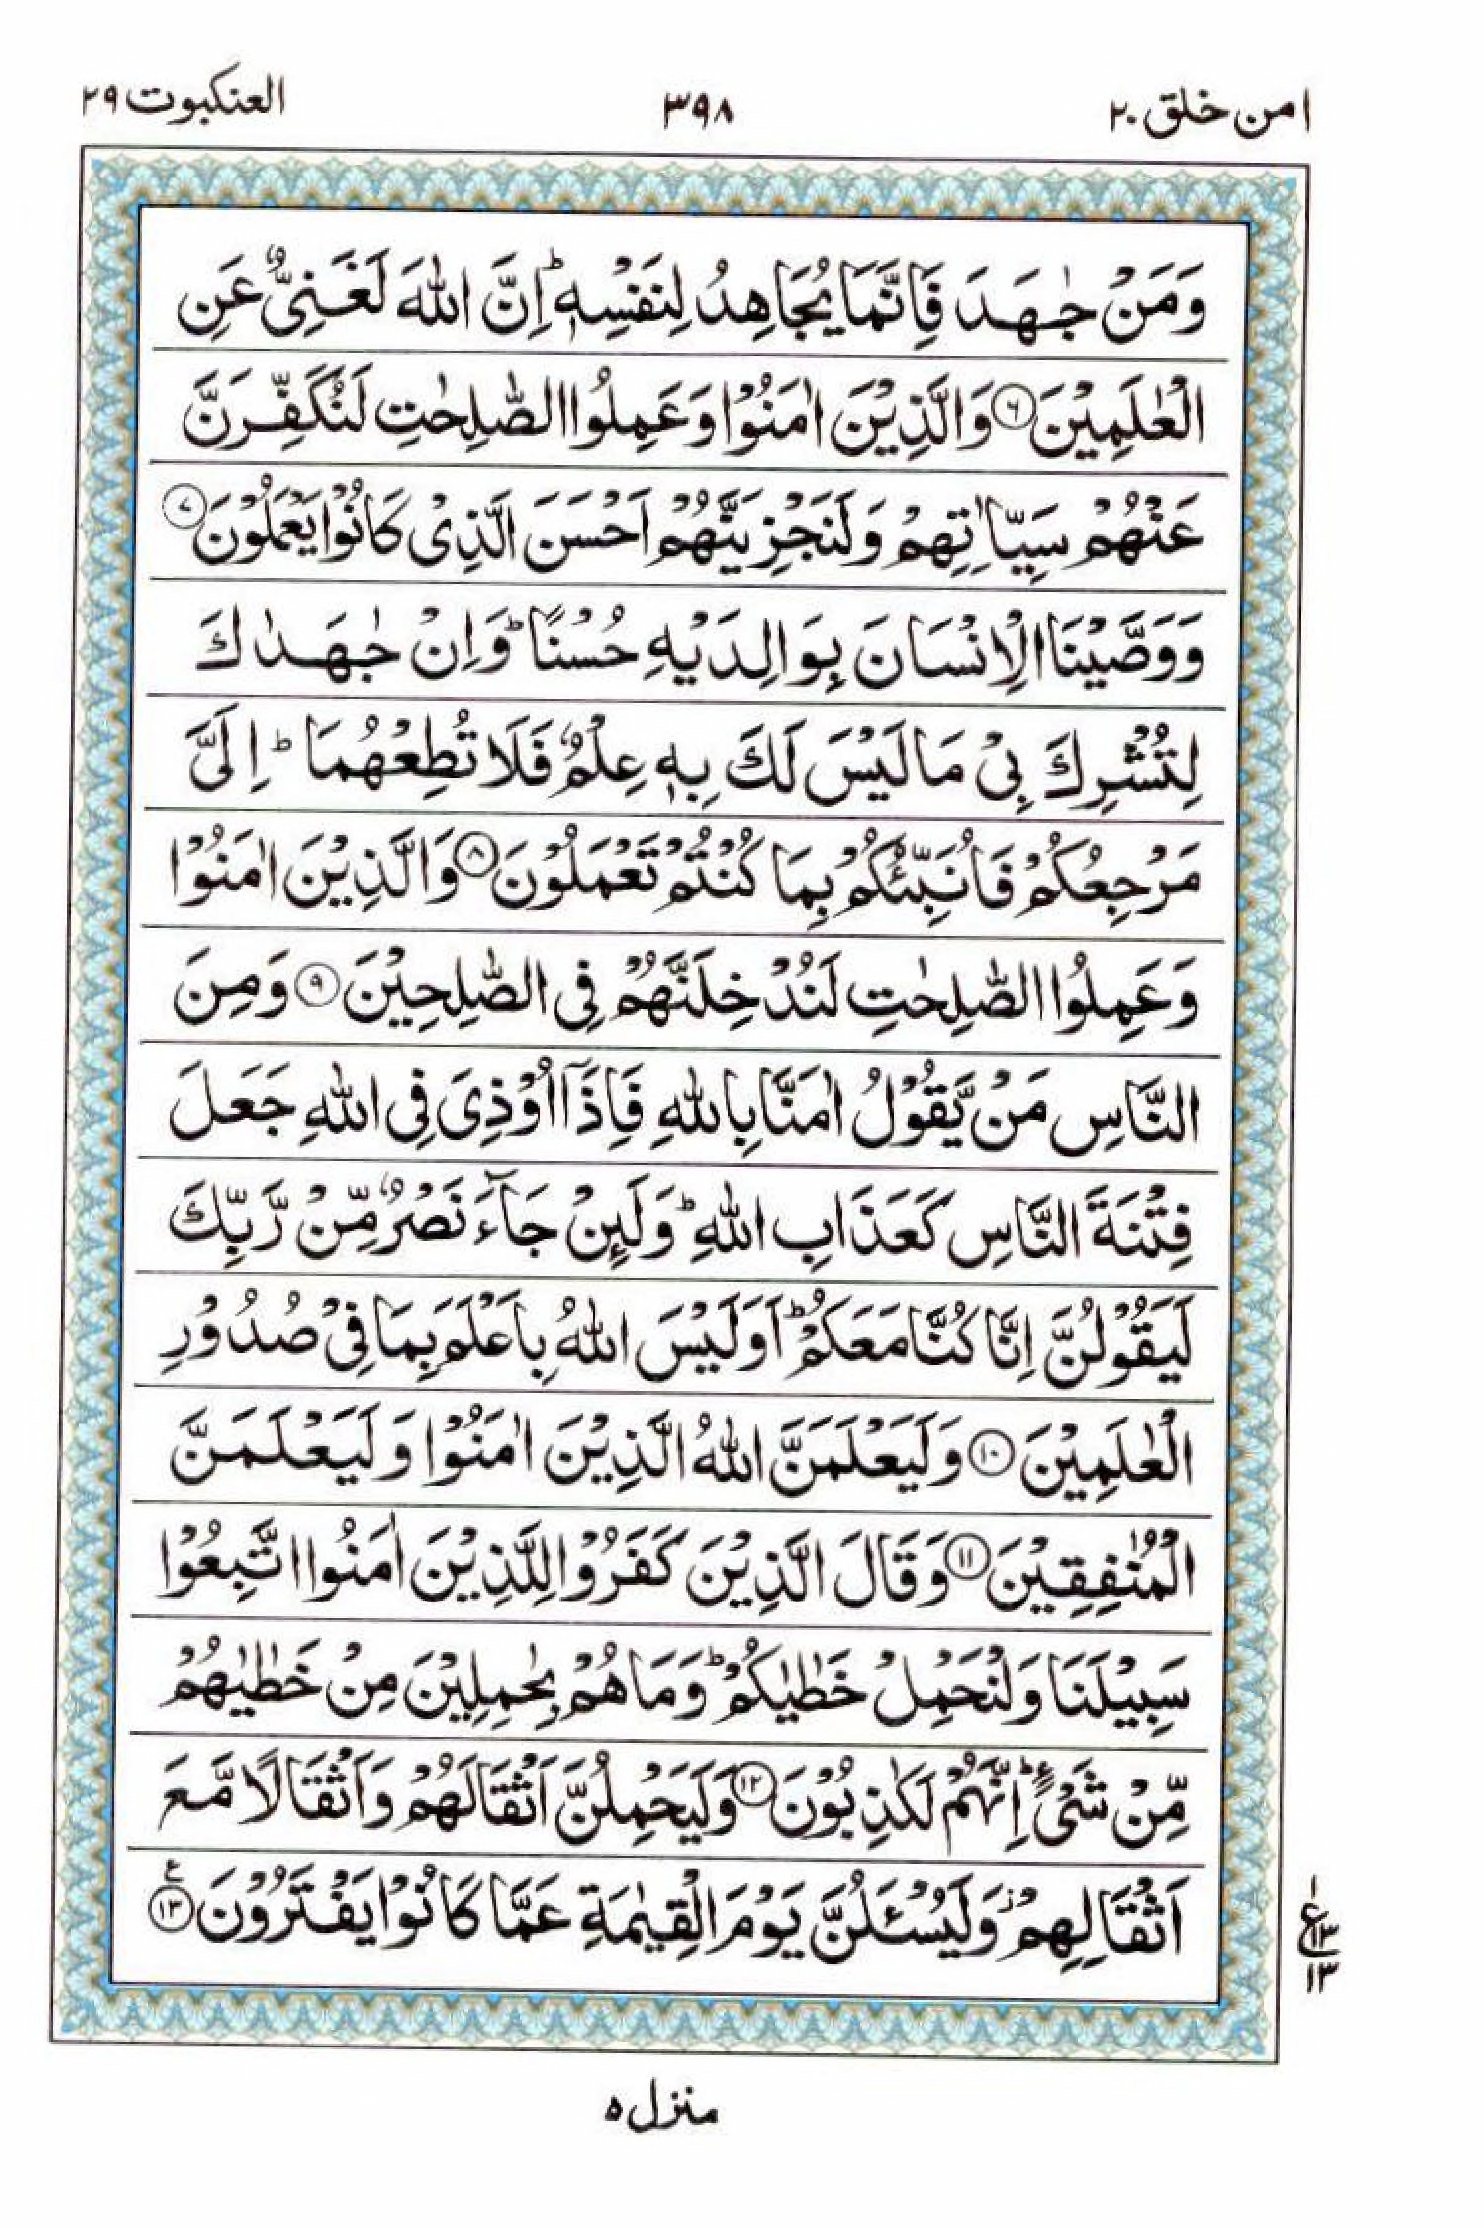 امن خلق ٢٠
٣٩٨
العنكبوت ٢٩
وَمَنْ جٰهَدَ فَاِنَّمَا يُجَاهِدُ لِنَفْسِهٖ ؕ اِنَّ اللّٰهَ لَغَنِىٌّ عَنِ
الْعٰلَمِيْنَ ﴿٦﴾ وَالَّذِيْنَ اٰمَنُوْا وَعَمِلُوا الصّٰلِحٰتِ لَنُكَفِّرَنَّ
عَنْهُمْ سَيِّاٰتِهِمْ وَلَنَجْزِيَنَّهُمْ اَحْسَنَ الَّذِىْ كَانُوْا يَعْمَلُوْنَ ﴿٧﴾
وَوَصَّيْنَا الْاِنْسَانَ بِوَالِدَيْهِ حُسْنًا ؕ وَاِنْ جٰهَدٰكَ
لِتُشْرِكَ بِىْ مَا لَيْسَ لَكَ بِهٖ عِلْمٌ فَلَا تُطِعْهُمَا ؕ اِلَىَّ
مَرْجِعُكُمْ فَاُنَبِّئُكُمْ بِمَا كُنْتُمْ تَعْمَلُوْنَ ﴿٨﴾ وَالَّذِيْنَ اٰمَنُوْا
وَعَمِلُوا الصّٰلِحٰتِ لَنُدْخِلَنَّهُمْ فِى الصّٰلِحِيْنَ ﴿٩﴾ وَمِنَ
النَّاسِ مَنْ يَّقُوْلُ اٰمَنَّا بِاللّٰهِ فَاِذَاۤ اُوْذِىَ فِى اللّٰهِ جَعَلَ
فِتْنَةَ النَّاسِ كَعَذَابِ اللّٰهِ ؕ وَلَئِنْ جَآءَ نَصْرٌ مِّنْ رَّبِّكَ
لَيَقُوْلُنَّ اِنَّا كُنَّا مَعَكُمْ ؕ اَوَلَيْسَ اللّٰهُ بِاَعْلَمَ بِمَا فِىْ صُدُوْرِ
الْعٰلَمِيْنَ ﴿١٠﴾ وَلَيَعْلَمَنَّ اللّٰهُ الَّذِيْنَ اٰمَنُوْا وَلَيَعْلَمَنَّ
الْمُنٰفِقِيْنَ ﴿١١﴾ وَقَالَ الَّذِيْنَ كَفَرُوْا لِلَّذِيْنَ اٰمَنُوا اتَّبِعُوْا
سَبِيْلَنَا وَلْنَحْمِلْ خَطٰيٰكُمْ ؕ وَمَا هُمْ بِحٰمِلِيْنَ مِنْ خَطٰيٰهُمْ
مِّنْ شَىْءٍ ؕ اِنَّهُمْ لَكٰذِبُوْنَ ﴿١٢﴾ وَلَيَحْمِلُنَّ اَثْقَالَهُمْ وَاَثْقَالًا مَّعَ
اَثْقَالِهِمْ ۫ وَلَيُسْئَلُنَّ يَوْمَ الْقِيٰمَةِ عَمَّا كَانُوْا يَفْتَرُوْنَ ﴿١٣﴾ ع
١
ع ١٣
١٣
منزل ٥